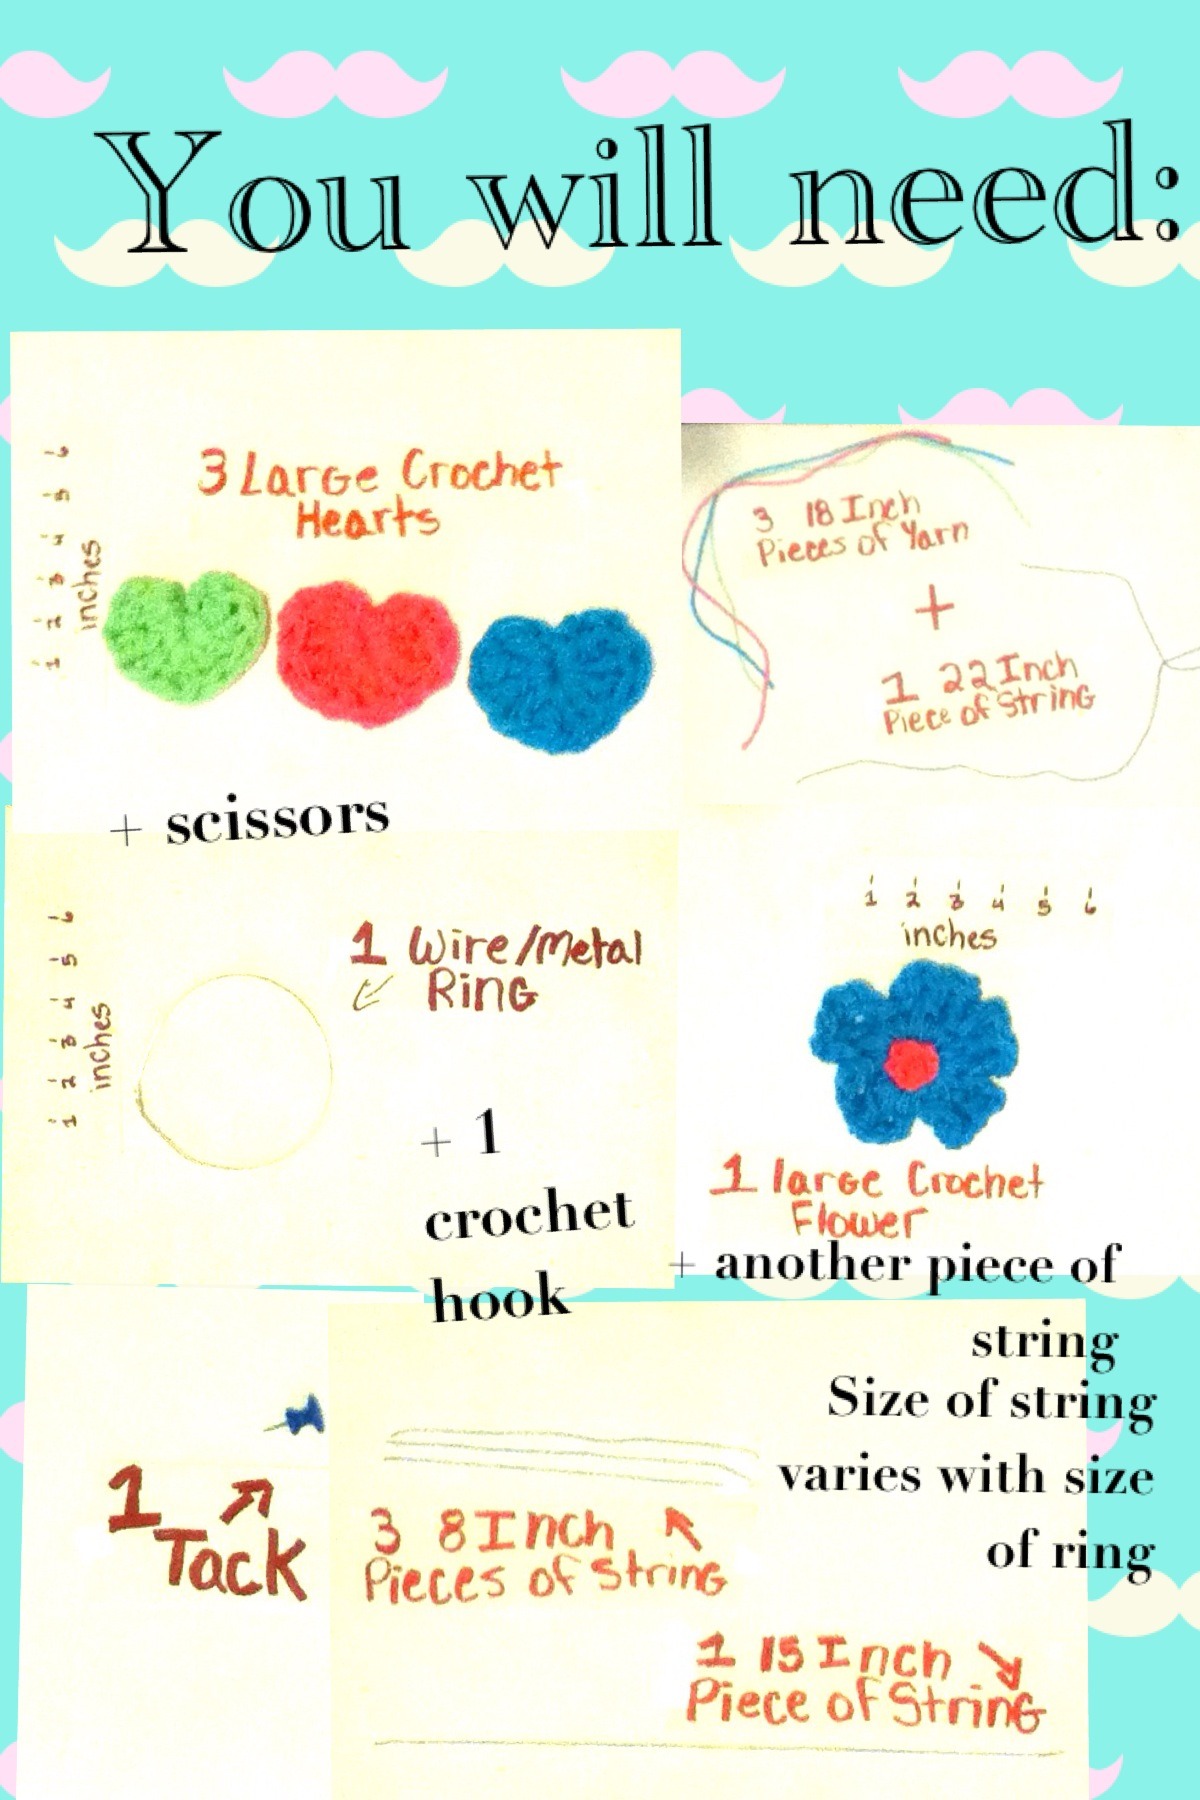 You will need:
6
5
4
3
2
1
inches
3 Large Crochet
Hearts
3 18 Inch
Pieces of Yarn
+
1 22 Inch
Piece of String
+ scissors
6
5
4
3
2
1
inches
1 Wire/Metal
Ring
+ 1
crochet
hook
1 2 3 4 5 6
inches
1 large Crochet
Flower
+ another piece of
string
Size of string
varies with size
of ring
1
Tack
3 8 Inch
Pieces of String
1 15 Inch
Piece of String